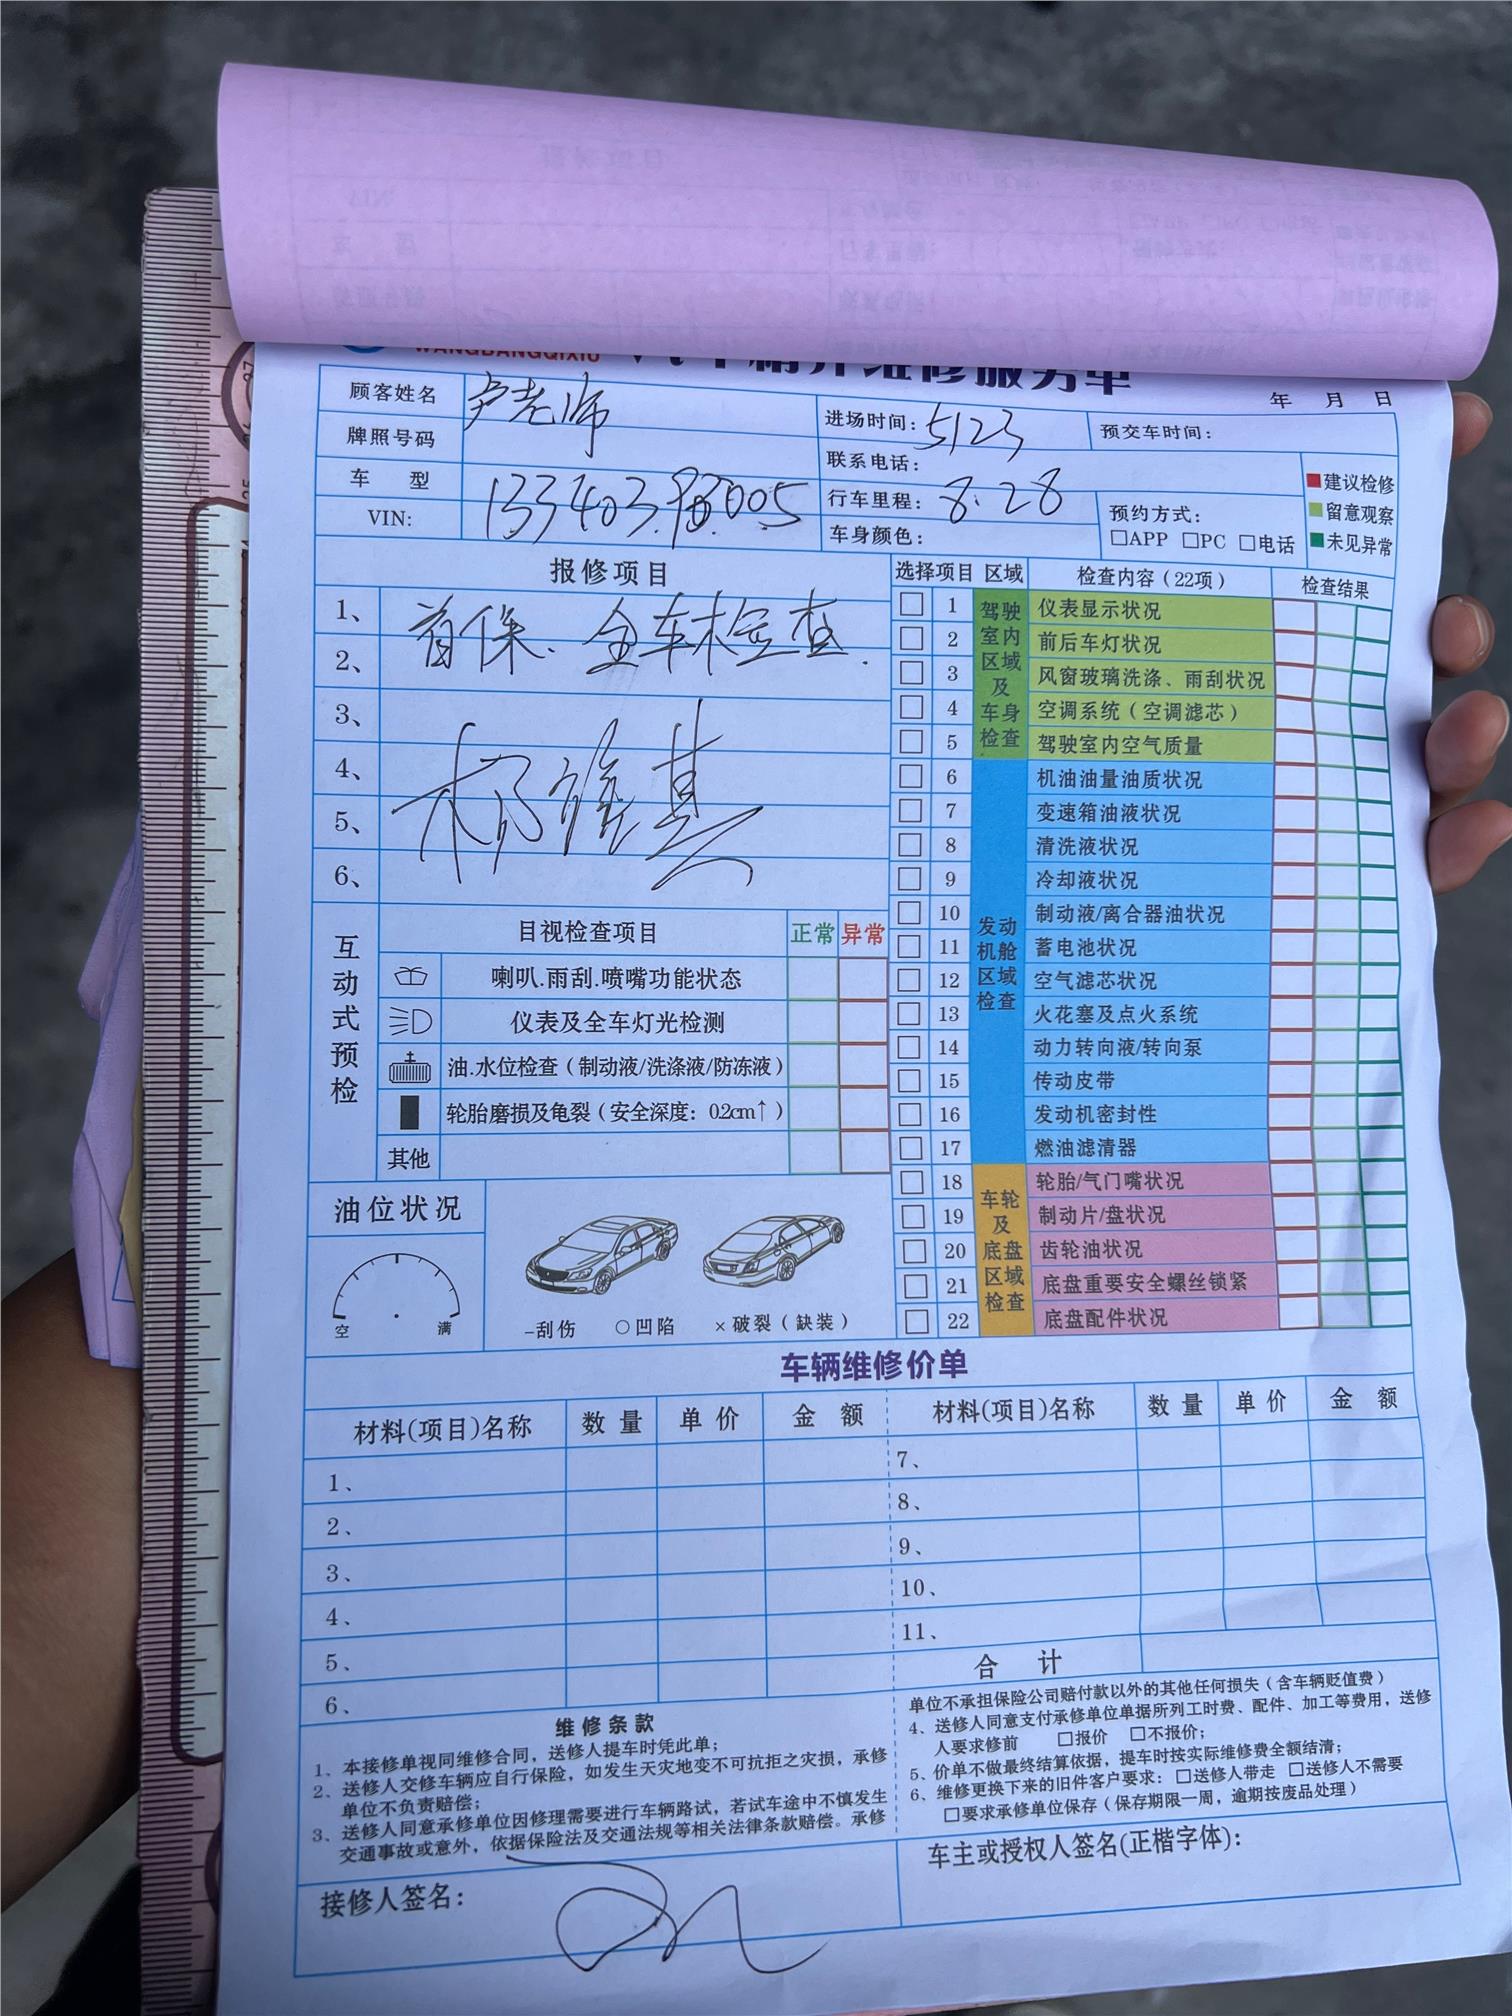 WANGBANGQIXIU 汽车精养维修服务单
年 月 日
顾客姓名 卢老师
进场时间: 5123
预交车时间:
牌照号码
联系电话:
车 型
行车里程: 8.28
VIN:
车身颜色:
预约方式:
□APP □PC □电话
建议检修
留意观察
未见异常
报修项目
1、 首保、全车检查.
2、
3、
4、
5、
6、
选择项目 区域 检查内容(22项) 检查结果
驾驶室内区域及车身检查
1 仪表显示状况
2 前后车灯状况
3 风窗玻璃洗涤、雨刮状况
4 空调系统(空调滤芯)
5 驾驶室内空气质量
发动机舱区域检查
6 机油油量油质状况
7 变速箱油液状况
8 清洗液状况
9 冷却液状况
10 制动液/离合器油状况
11 蓄电池状况
12 空气滤芯状况
13 火花塞及点火系统
14 动力转向液/转向泵
15 传动皮带
16 发动机密封性
17 燃油滤清器
车轮及底盘区域检查
18 轮胎/气门嘴状况
19 制动片/盘状况
20 齿轮油状况
21 底盘重要安全螺丝锁紧
22 底盘配件状况
互动式预检
目视检查项目 正常 异常
喇叭.雨刮.喷嘴功能状态
仪表及全车灯光检测
油.水位检查(制动液/洗涤液/防冻液)
轮胎磨损及龟裂(安全深度: 0.2cm↑)
其他
油位状况
空 满
-刮伤 ○凹陷 ×破裂(缺装)
车辆维修价单
材料(项目)名称 数量 单价 金 额 材料(项目)名称 数量 单价 金 额
1、
2、
3、
4、
5、
6、
7、
8、
9、
10、
11、
合 计
维修条款
1、本接修单视同维修合同，送修人提车时凭此单;
2、送修人交修车辆应自行保险，如发生天灾地变不可抗拒之灾损，承修
单位不负责赔偿;
3、送修人同意承修单位因修理需要进行车辆路试，若试车途中不慎发生
交通事故或意外，依据保险法及交通法规等相关法律条款赔偿。承修
单位不承担保险公司赔付款以外的其他任何损失(含车辆贬值费)
4、送修人同意支付承修单位单据所列工时费、配件、加工等费用，送修
人要求修前 □报价 □不报价;
5、价单不做最终结算依据，提车时按实际维修费全额结清;
6、维修更换下来的旧件客户要求: □送修人带走 □送修人不需要
□要求承修单位保存(保存期限一周，逾期按废品处理)
接修人签名:
车主或授权人签名(正楷字体):